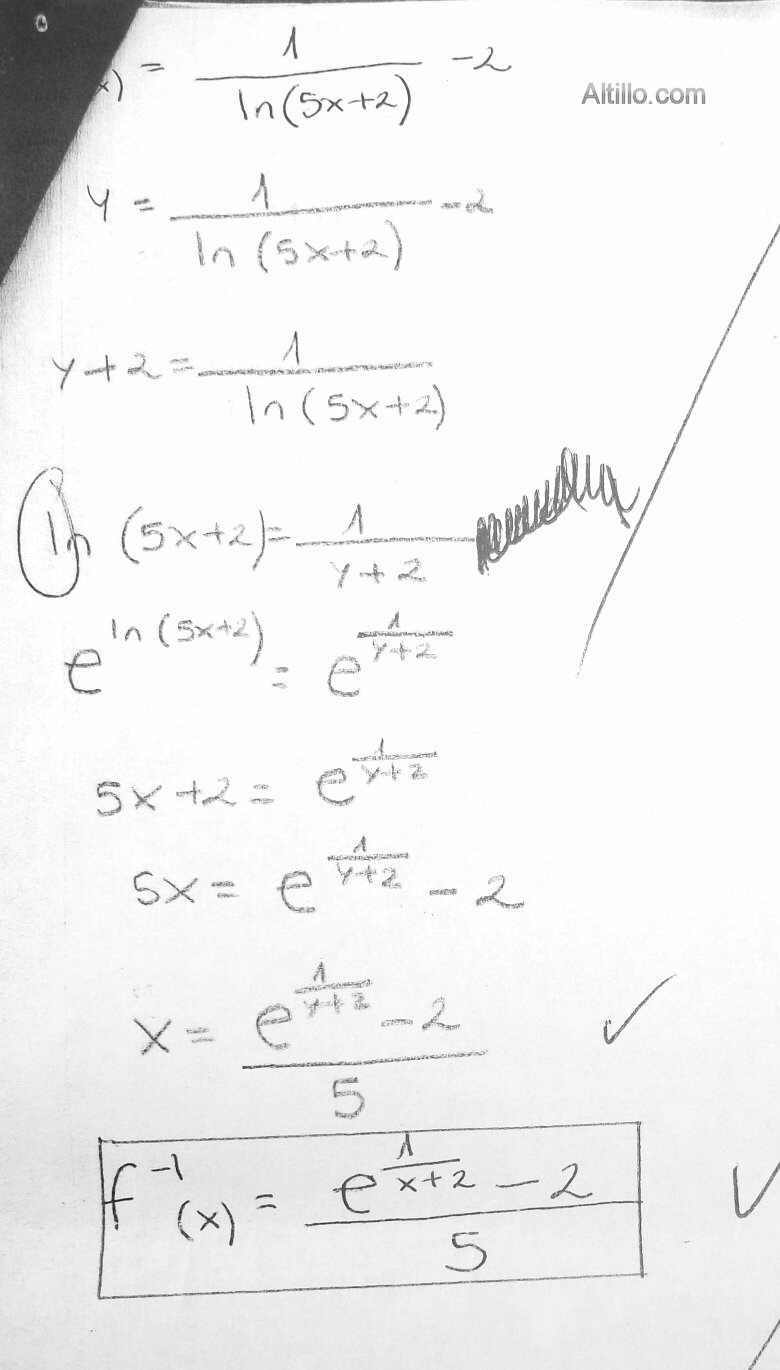 x) = 1/ln(5x+2) -2
Altillo.com
y = 1/ln(5x+2) -2
y+2 = 1/ln(5x+2)
ln(5x+2) = 1/y+2
e^ln(5x+2) = e^1/y+2
5x+2 = e^1/y+2
5x = e^1/y+2 - 2
x = e^1/y+2 - 2/5
f^-1(x) = e^1/x+2 - 2/5